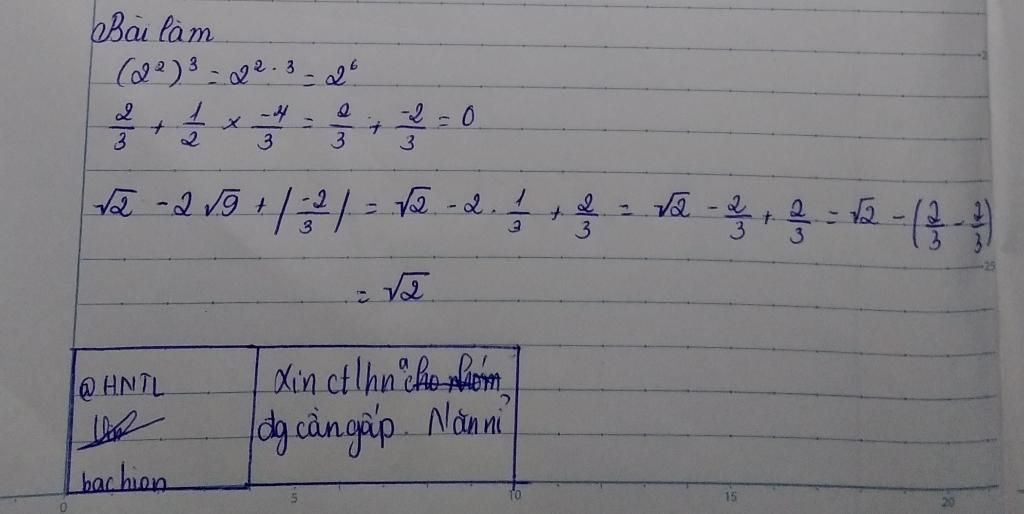 Bài làm
(2²)³ = 2^{2 · 3} = 2⁶
2/3 + 1/2 × -4/3 = 2/3 + -2/3 = 0
√2 - 2√9 + |-2/3| = √2 - 2 · 1/3 + 2/3 = √2 - 2/3 + 2/3 = √2 - (2/3 - 2/3)
= √2
@HNTL
bachion
Xin ctlhnª cho nhóm
đg cần gấp. Năn nỉ
25
0 5 10 15 20